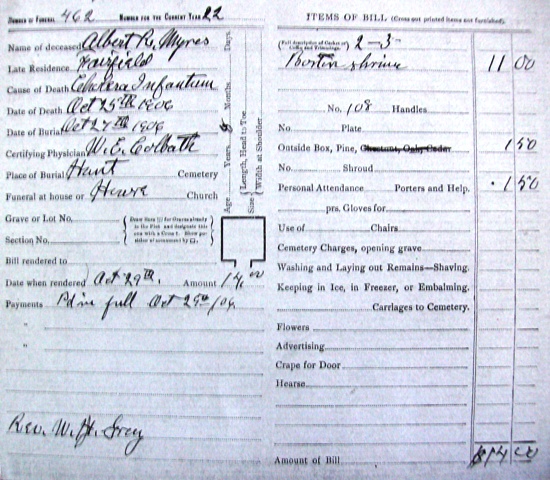 NUMBER OF FUNERAL 462 NUMBER FOR THE CURRENT YEAR 22
Name of deceased Albert R. Myres
Late Residence Fairfield
Cause of Death Cholera Infantum
Date of Death Oct 25th 1906
Date of Burial Oct 27th 1906
Certifying Physician W. E. Colbath
Place of Burial Hunt Cemetery
Funeral at house or House Church
Age Years 8 Months Days
Size Length, Head to Toe
Width at Shoulder
Grave or Lot No.
Section No.
Bill rendered to
Date when rendered Oct 29th. Amount 14.00
Payments Pd in full Oct 29th /06.
"
"
Rev. W. H.
ITEMS OF BILL (Cross out printed items not furnished).
2-3
Boston shrine 11 00
No. 108 Handles
No. Plate
Outside Box, Pine, Chestnut, Oak, Cedar 1 50
No. Shroud
Personal Attendance Porters and Help. 1 50
prs. Gloves for
Use of Chairs
Cemetery Charges, opening grave
Washing and Laying out Remains—Shaving.
Keeping in Ice, in Freezer, or Embalming.
Carriages to Cemetery.
Flowers
Advertising
Crape for Door
Hearse
Amount of Bill $14 00